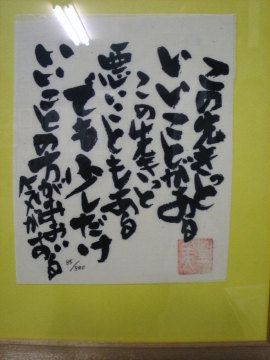 この先きっと
いいことがある
この先きっと
悪いこともある
でも少しだけ
いいことの方が多い
気がする
85/300